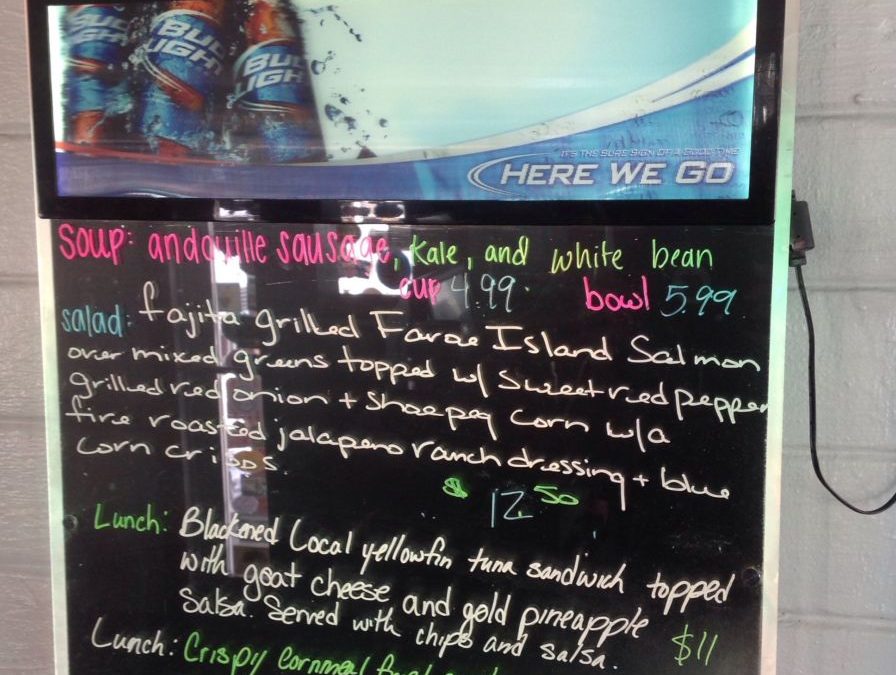 BUD LIGHT
BUD LIGHT
BUD LIGHT
IT'S THE SURE SIGN OF A GOOD TIME
HERE WE GO
Soup: andouille sausage, kale, and white bean
cup 4.99 bowl 5.99
salad: fajita grilled Faroe Island Salmon
over mixed greens topped w/ sweet red pepper
grilled red onion + shoepeg corn w/a
fire roasted jalapeno ranch dressing + blue
corn crisps.
$12.50
Lunch: Blackened Local yellowfin tuna sandwich topped
with goat cheese and gold pineapple
salsa. Served with chips and salsa. $11
Lunch: Crispy cornmeal